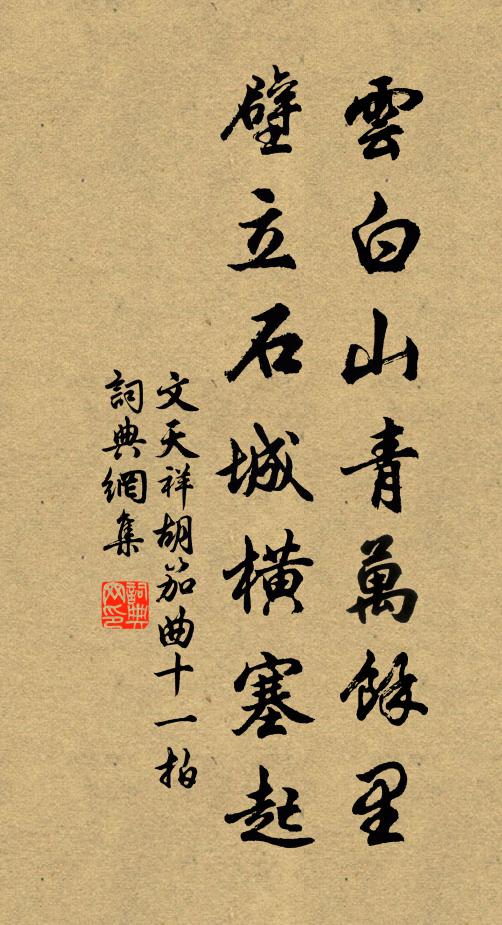 雲白山青萬餘里
壁立石城橫塞起
文天祥胡笳曲十一拍
詞典網集
詞典网印